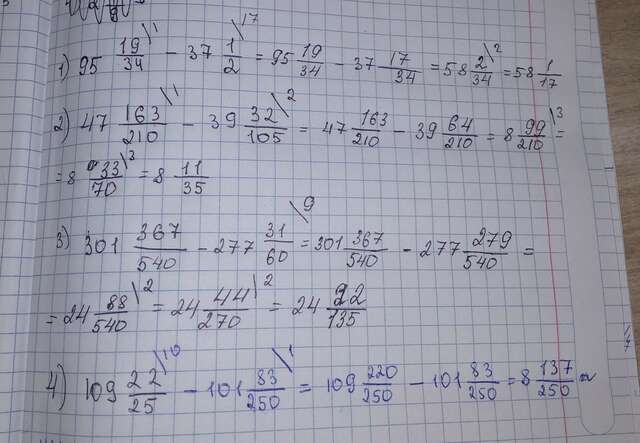 1) 95 19/34 \1 - 37 1/2 \17 = 95 19/34 - 37 17/34 = 58 2/34 \2 = 58 1/17
2) 47 163/210 \1 - 39 32/105 \2 = 47 163/210 - 39 64/210 = 8 99/210 \3 =
= 8 33/70 \3 = 8 11/35
3) 301 367/540 - 277 31/60 \9 = 301 367/540 - 277 279/540 =
= 24 88/540 \2 = 24 44/270 \2 = 24 22/135
4) 109 22/25 \10 - 101 83/250 \1 = 109 220/250 - 101 83/250 = 8 137/250